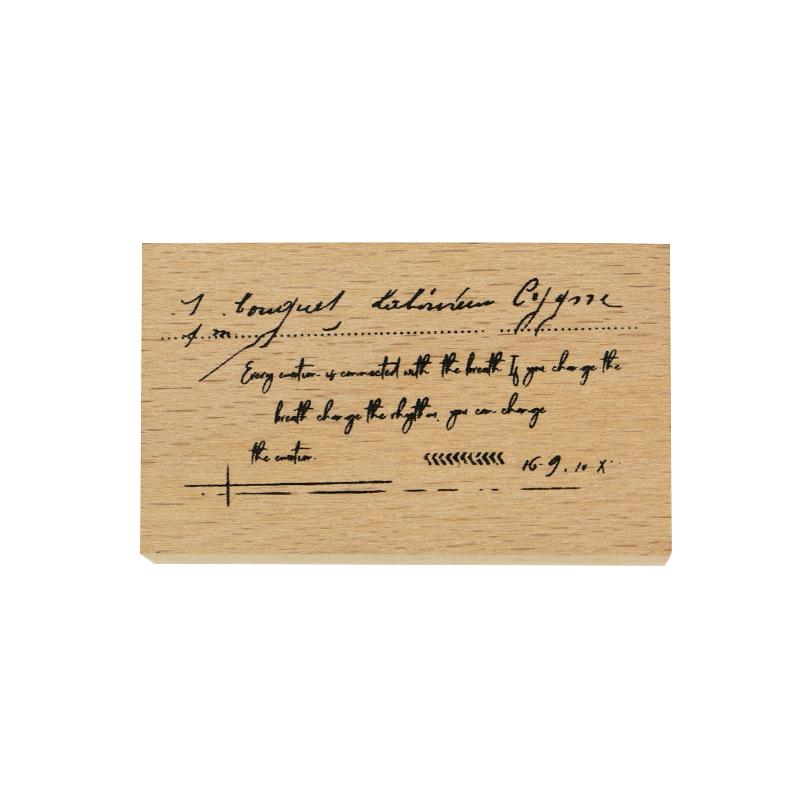 1 bouquet
Every emotion is connected with the breath If you change the
breath change the rhythm, you can change
the emotion.
16-9. 10 X